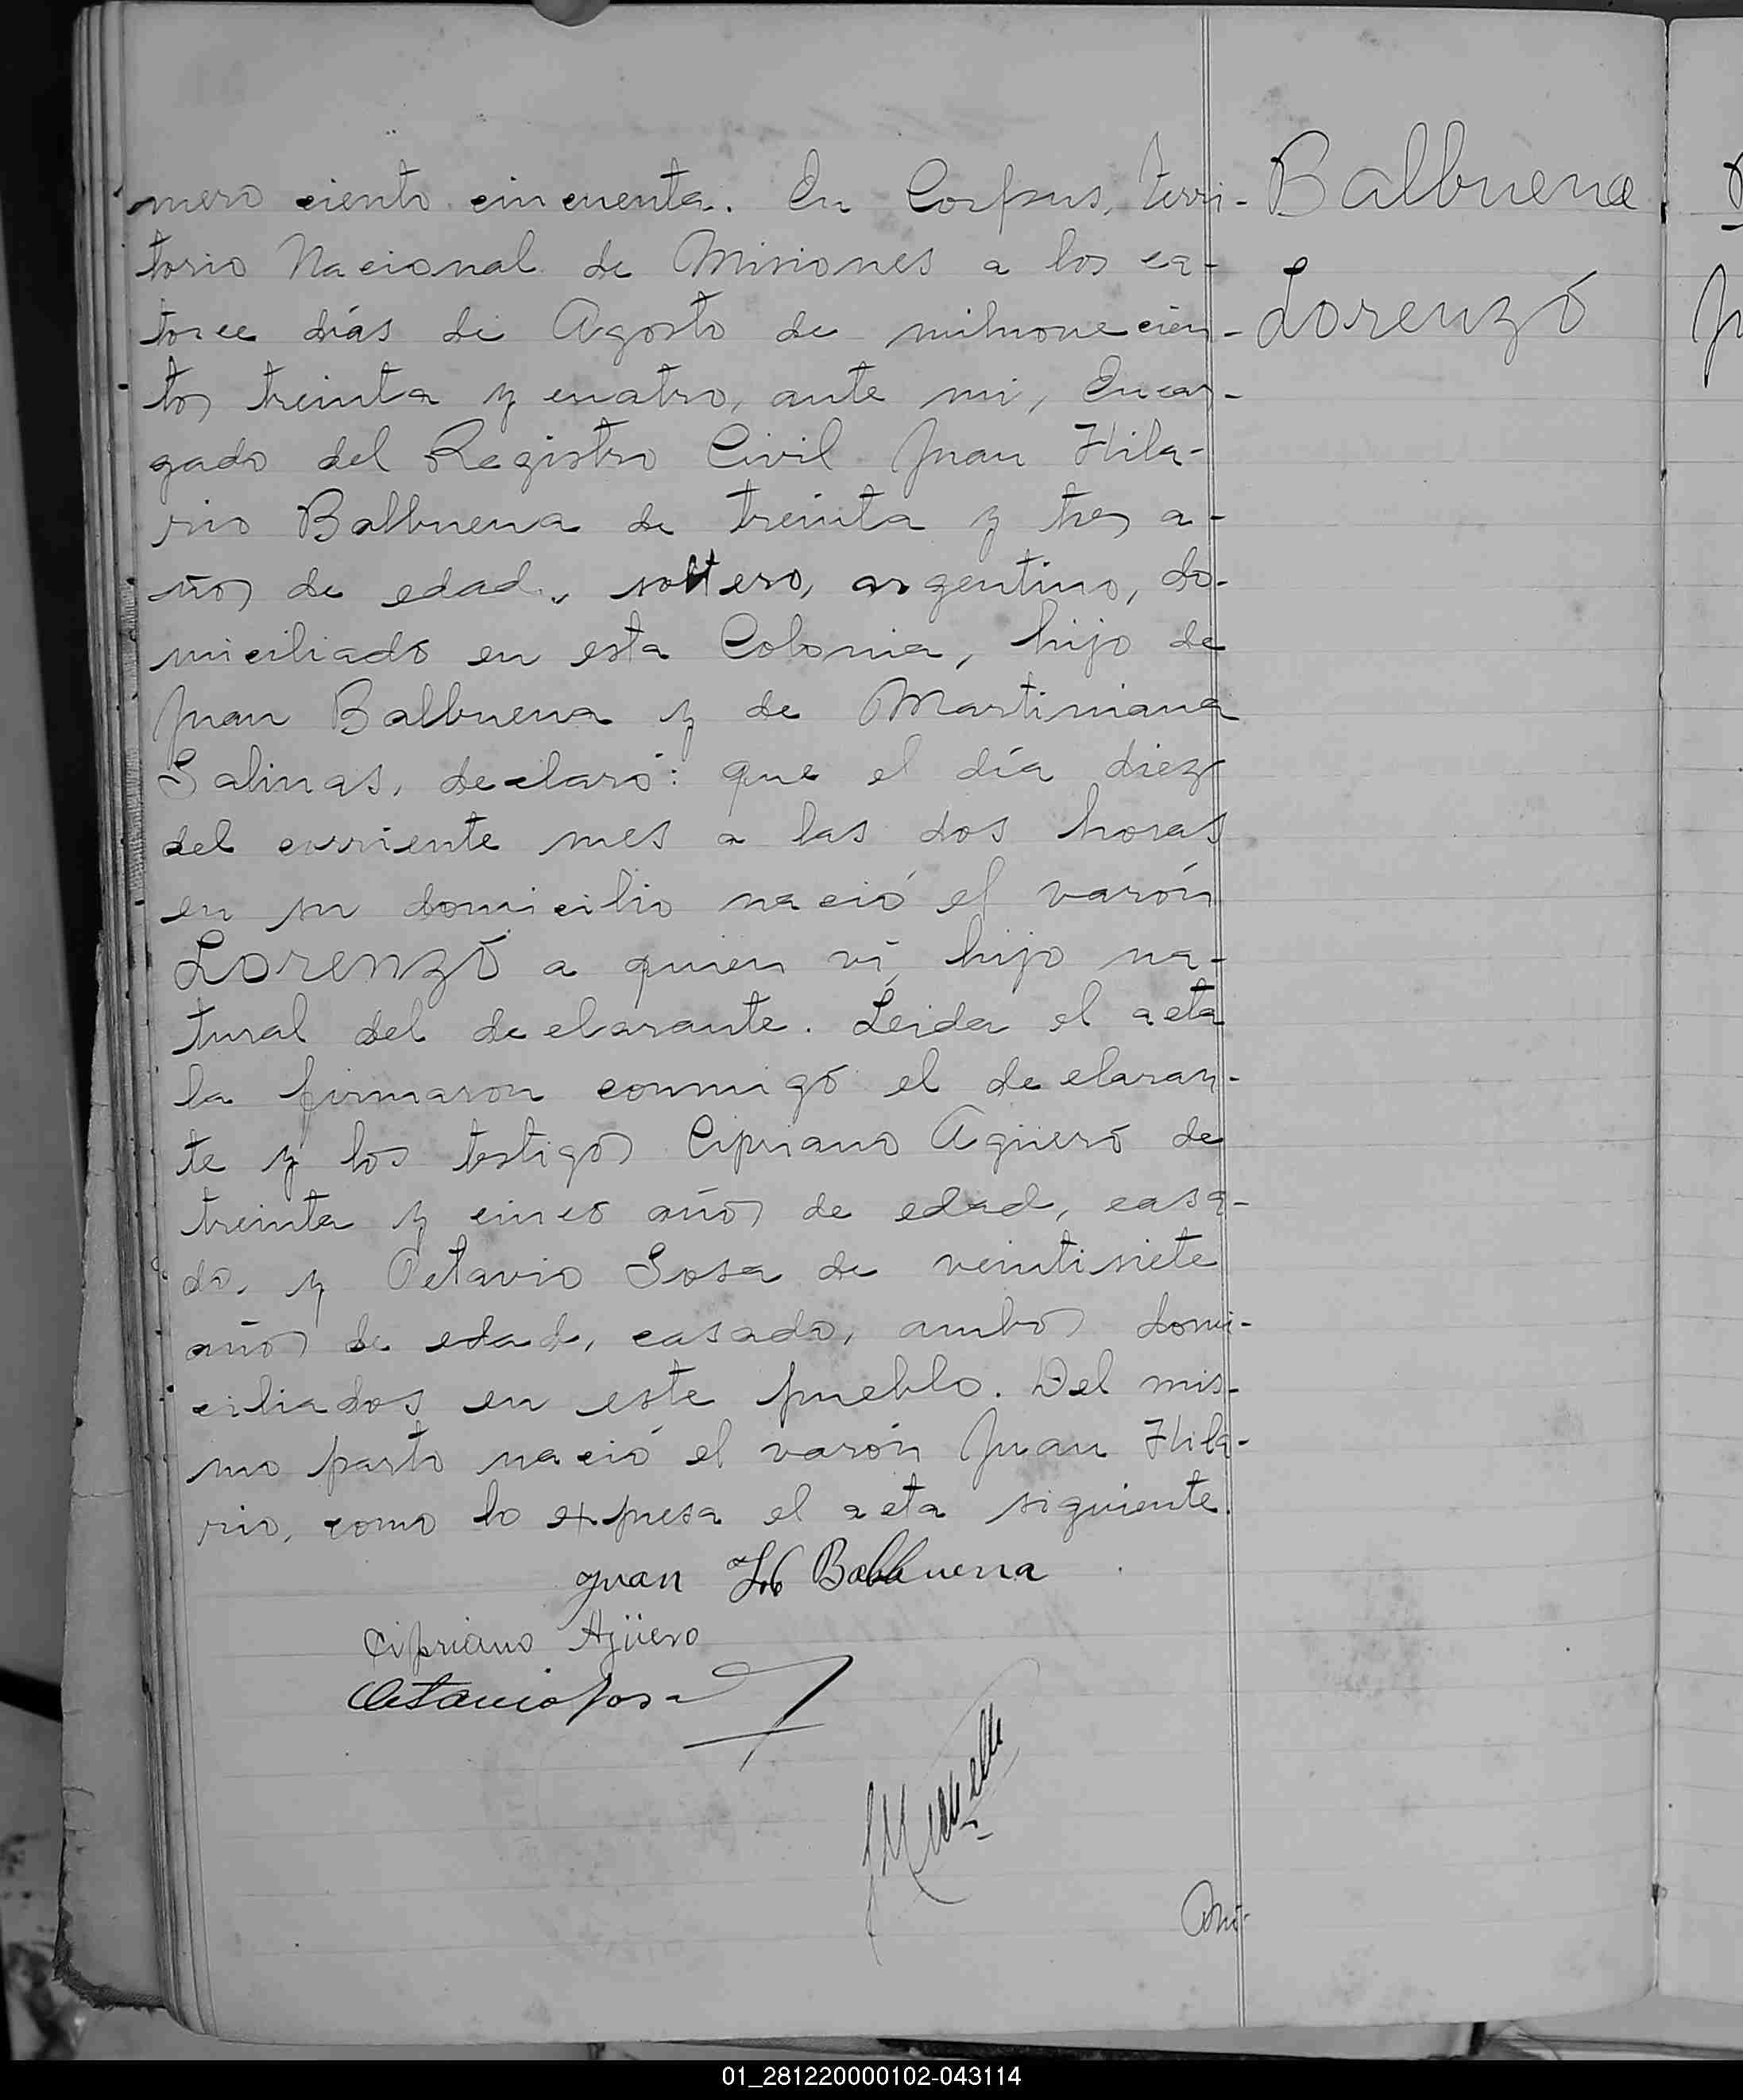 mero ciento cincuenta. En Corpus, Terri-
torio Nacional de Misiones a los ca-
torce días de Agosto de milnovecien-
tos treinta y cuatro, ante mi, Encar-
gado del Registro Civil Juan Hila-
rio Balbuena de treinta y tres a-
ños de edad, soltero, argentino, do-
miciliado en esta Colonia, hijo de
Juan Balbuena y de Martiniana
Salinas, declaró: que el día diez
del corriente mes a las dos horas
en su domicilio nació el varón
Lorenzo a quien ví, hijo na-
tural del declarante. Leida el acta
la firmaron conmigo el declaran-
te y los testigos Cipriano Agüero de
treinta y cinco años de edad, casa-
do, y Octavio Sosa de veintisiete
años de edad, casado, ambos domi-
ciliados en este pueblo. Del mis-
mo parto nació el varón Juan Hila-
rio, como lo expresa el acta siguiente.
Balbuena
Lorenzo
Juan H Balbuena
Cipriano Agüero
Octavio Sosa
01_281220000102-043114